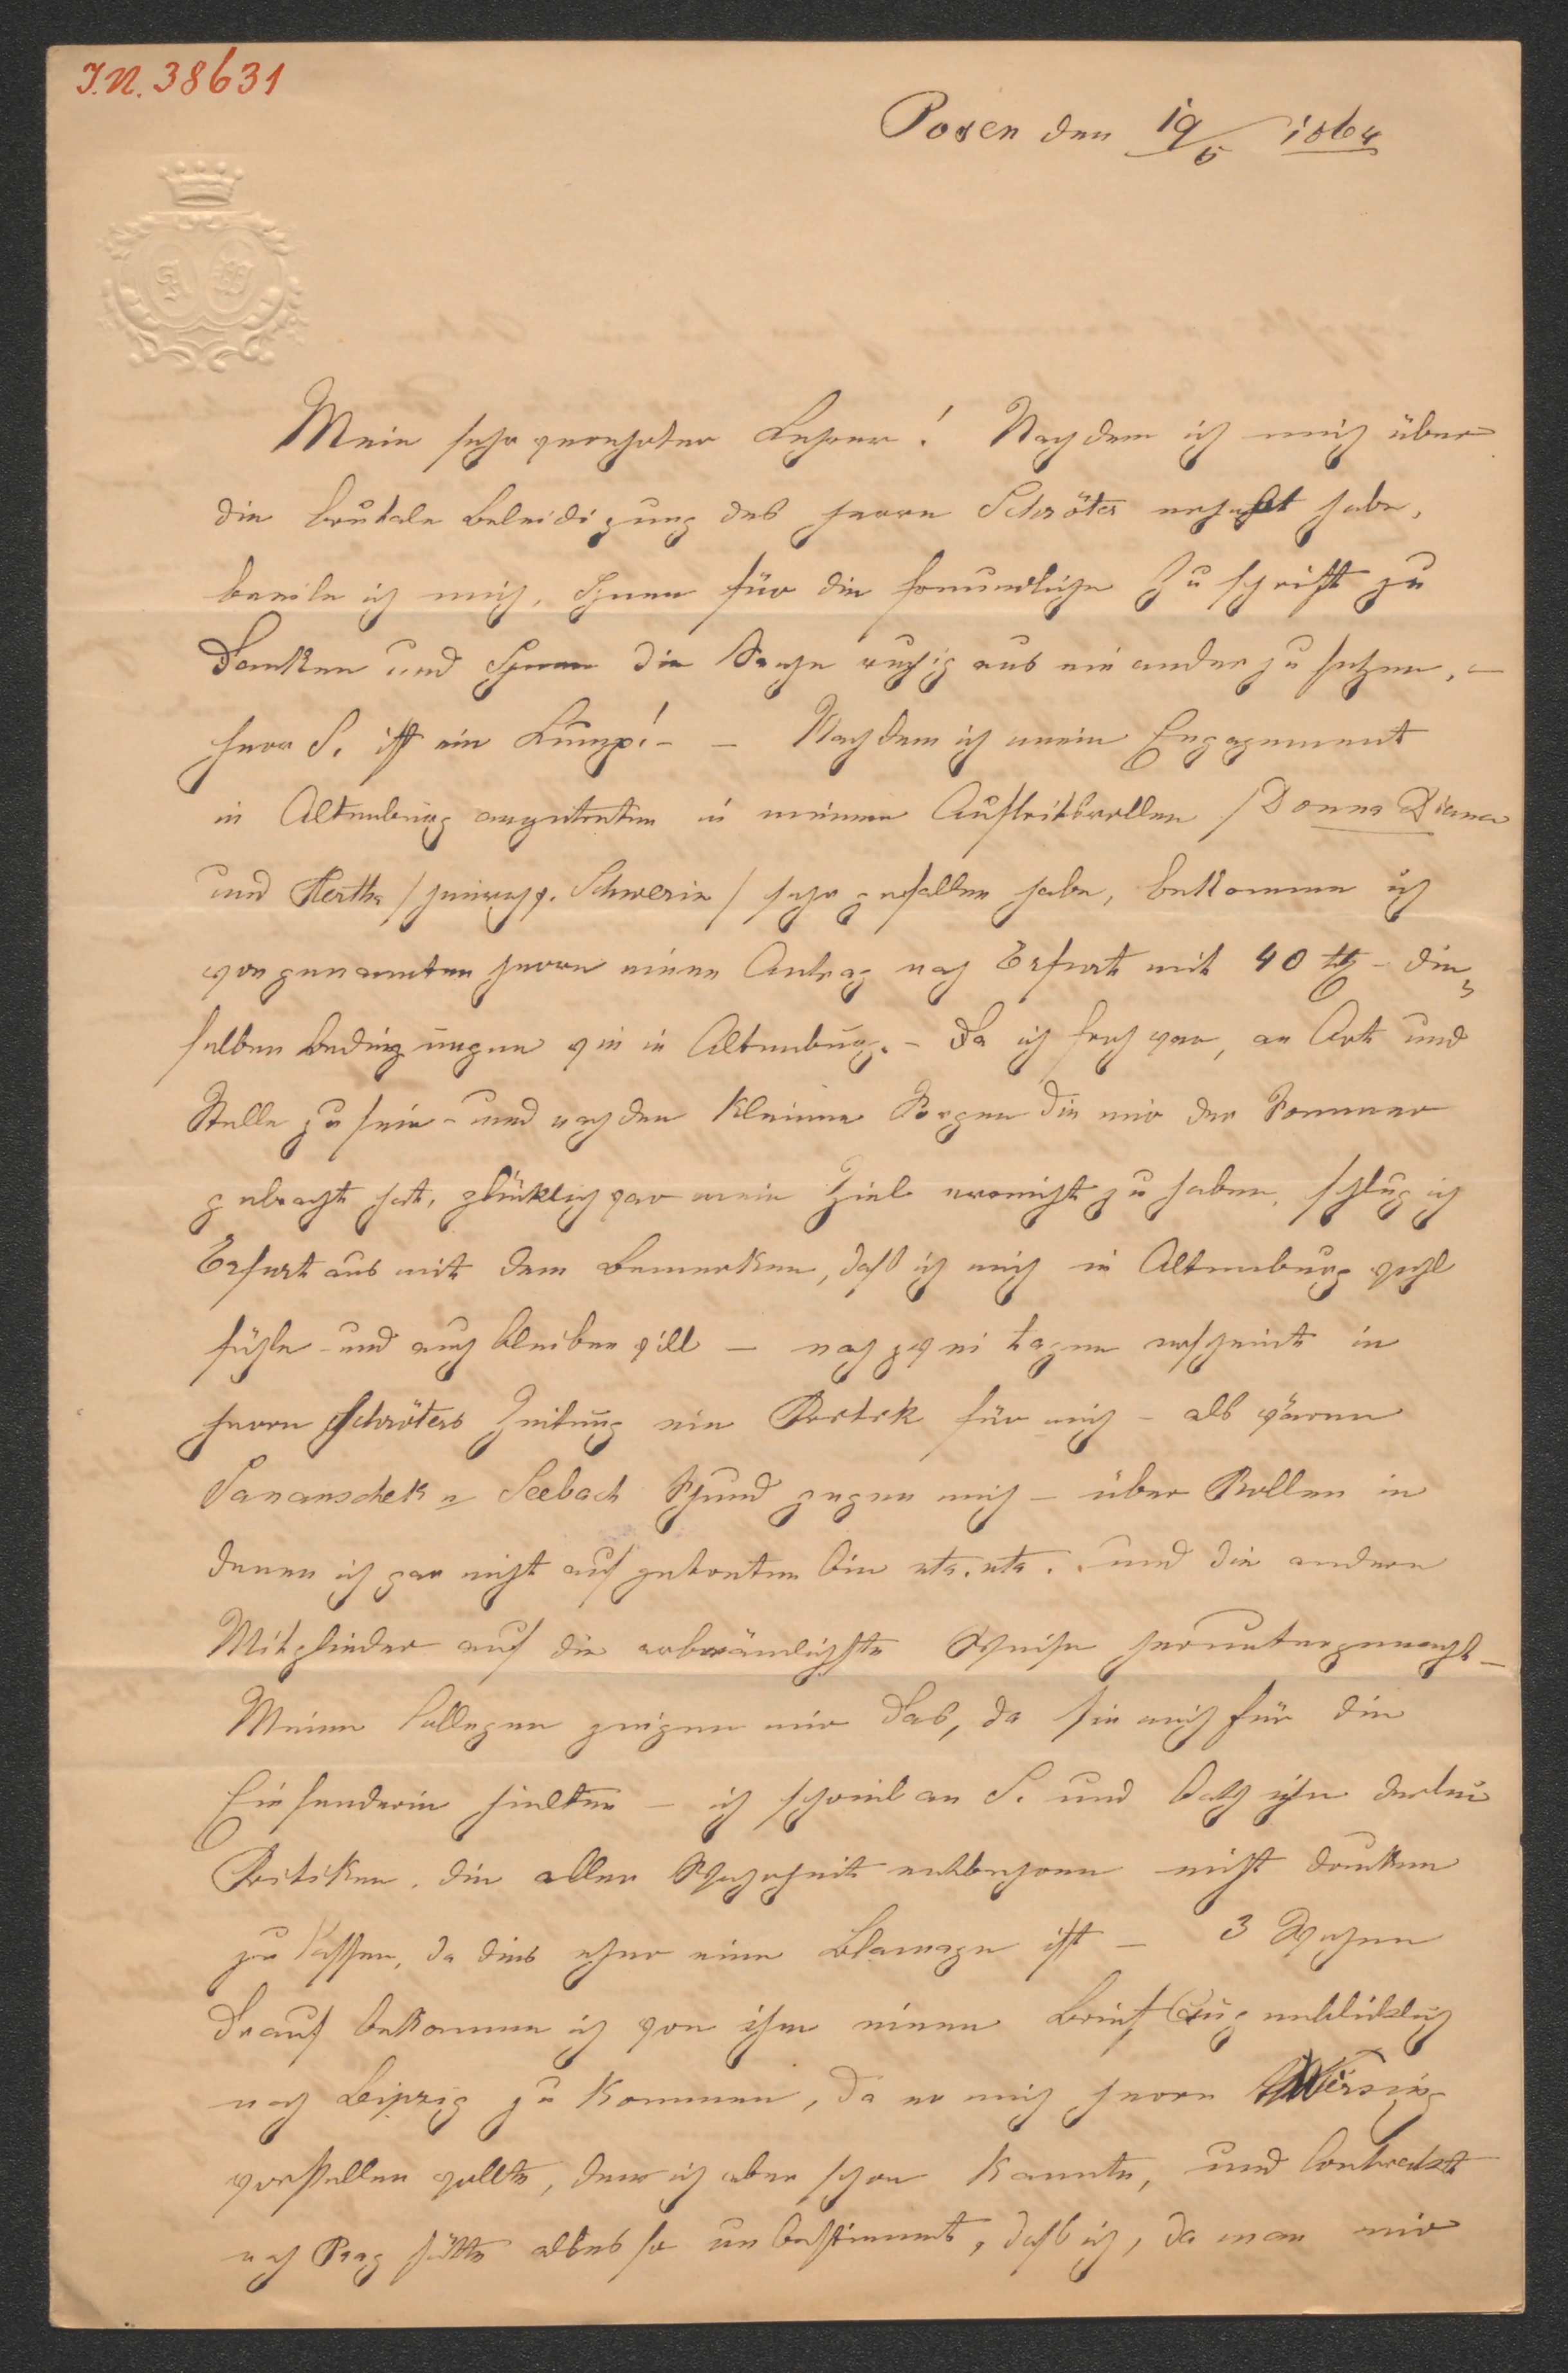 J.N. 38631
Posen den 19/5 1864
Mein sehr verehrter Lehrer! Nachdem ich mich über
die brutale Beleidigung des Herrn Schröter erholt habe,
beeile ich mich, Ihnen für die freundliche Zuschrift zu
Danken und Ihnen die Sache ruhig aus einander zu setzen, –
Herr S. ist ein Lump! – – Nachdem ich mein Engagement
in Altenburg angetreten in meinen Auftrittsrollen /Donna Diana
und Hertha / Heinrich v. Schwerin / sehr gefallen habe, bekomme ich
vongenannten Herrn einen Antrag nach Erfurt mit 40 – die-
selben Bedingungen wie in Altenburg. – Da ich froh war, an Ort und
Stelle zu sein – und nach den kleinen Sorgen die mir der Sommer
gebracht hat, glücklich war mein Ziel erreicht zu haben, schlug ich
Erfurt aus mit dem Bemerken, daß ich mich in Altenburg wohl
fühle – und auch bleiben will – nach zwei Tagen erscheint in
Herrn Schröters Zeitung ein für mich – als wären
Janauschek u Seebach Schund gegen mich – über Rollen in
denen ich gar nicht aufgetreten bin etc. etc.. und die andern
Mitglieder auf die erbärmlichste Weise heruntergemacht –
Meine Collegen zeigen mir das, da sie mich für die
Einsenderin hielten – ich schreib an S. und bath ihn derlei
Kritiken, die aller Wahrheit entbehren nicht drucken
zu lassen, da dies eher eine Blamage ist – 3 Wochen
drauf bekomme ich von ihm einen Brief Augenblicklich
nach Leipzig zu kommen, da er mich Herrn Wirsing
vorstellen wollte, den ich aber schon kannte, und Contrackt
nach Prag hätte alles so unbestimmt, daß ich, da man mir